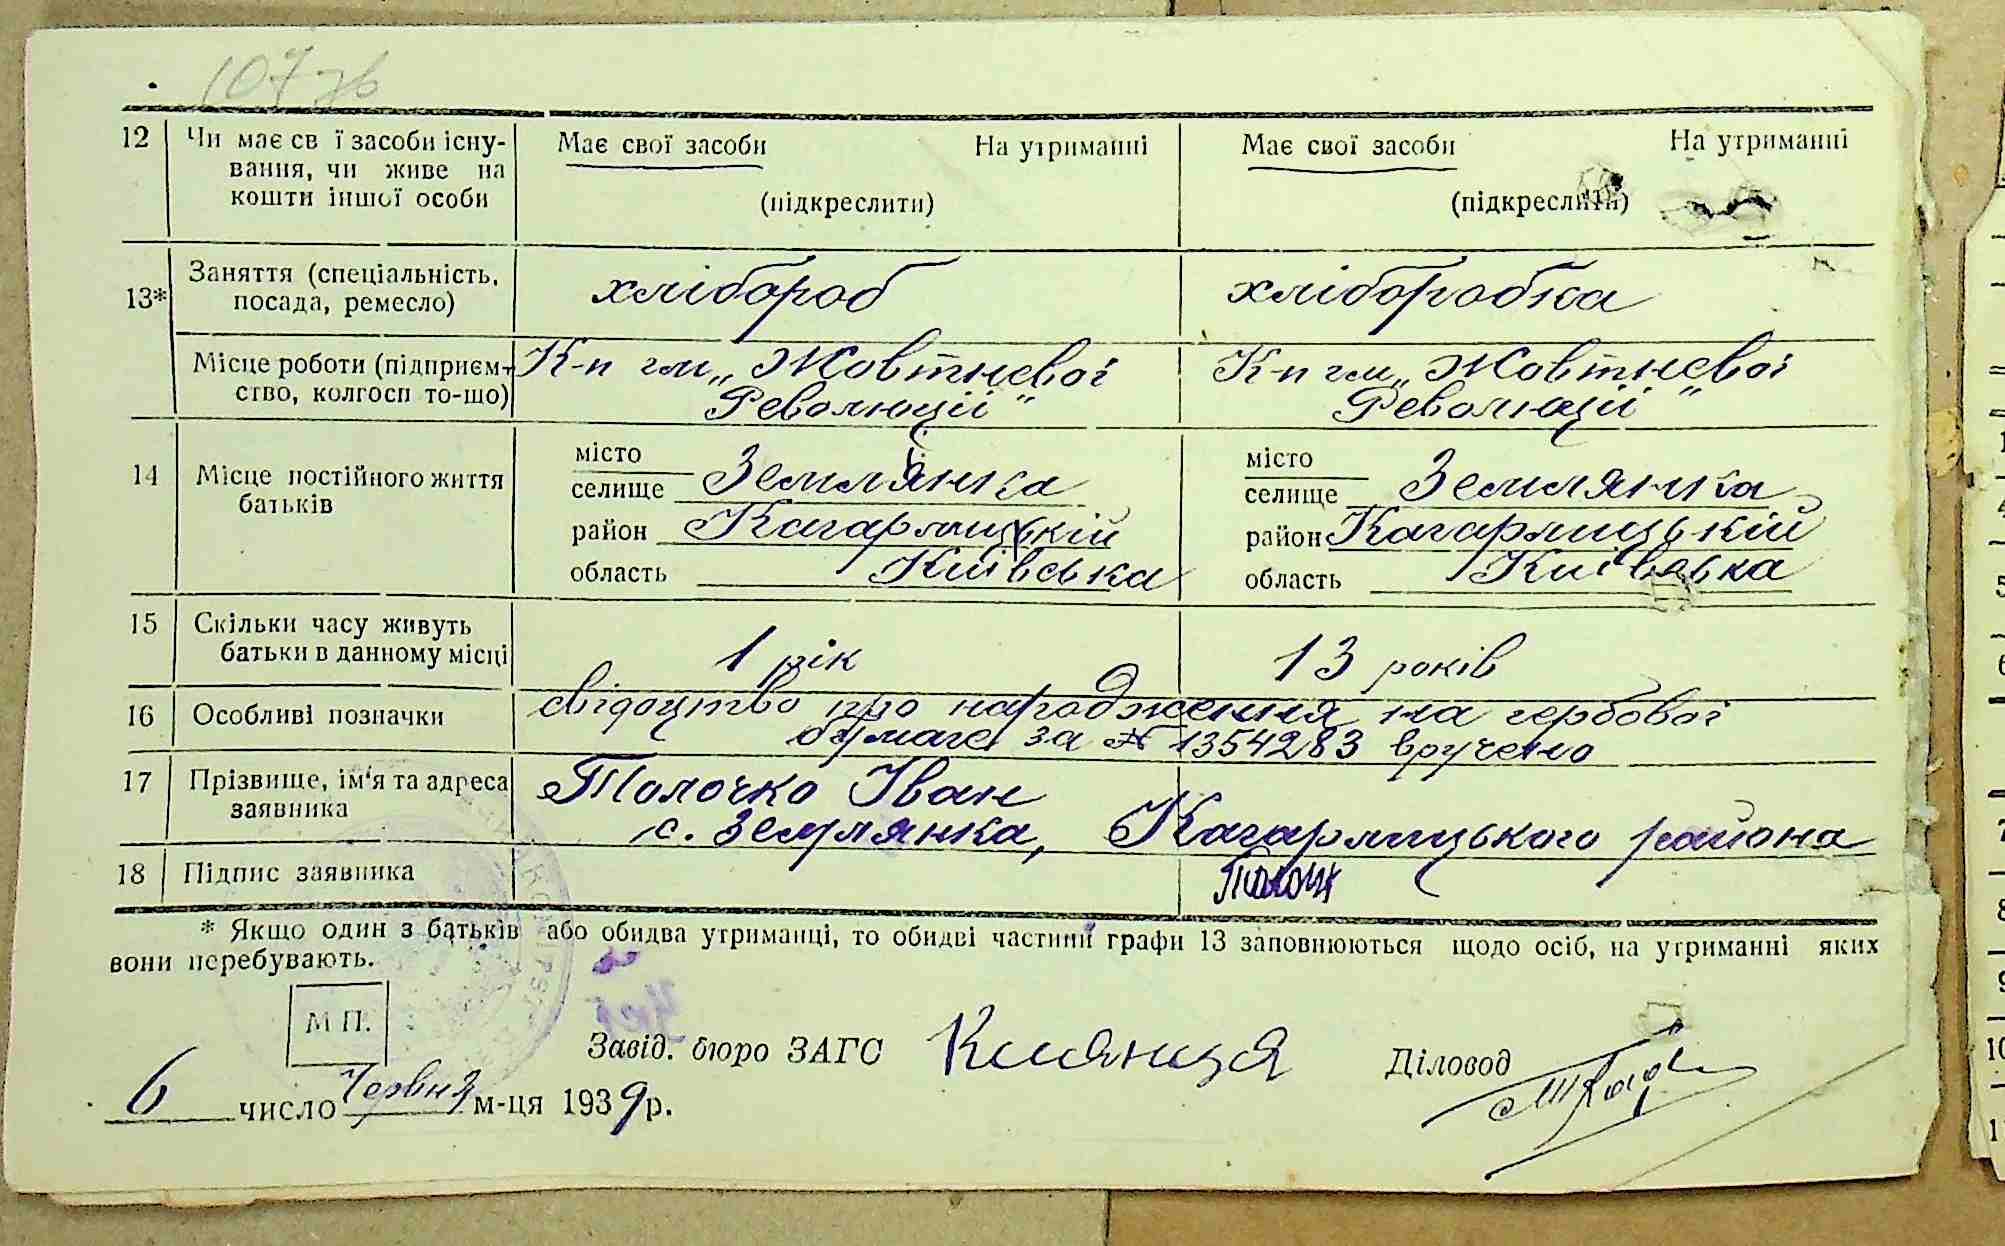 107 зв
12 Чи має св ї засоби існу- Має свої засоби На утриманні Має свої засоби На утриманні
вання, чи живе на
кошти іншої особи (підкреслити) (підкреслити)
13* Заняття (спеціальність, хлібороб хлібороbка
посада, ремесло)
Місце роботи (підприєм- К-п ім „Жовтневої К-п ім „Жовтневої
ство, колгосп то-що) Революції" Революції"
14 Місце постійного життя місто місто
батьків селище Землянка селище Землянка
район Кагарлицькій район Кагарлицькій
область Київська область Київська
15 Скільки часу живуть
батьки в данному місці 1 рік 13 років
16 Особливі позначки свідоцтво про народження на гербової
бумаге за № 1354283 вручено
17 Прізвище, ім'я та адреса Толочко Іван
заявника с. Землянка, Кагарлицького района
18 Підпис заявника Толоч
* Якщо один з батьків або обидва утриманці, то обидві частини графи 13 заповнюються щодо осіб, на утриманні яких
вони перебувають.
М П.
Завід. бюро ЗАГС Діловод
6 число Червня м-ця 1939 р.